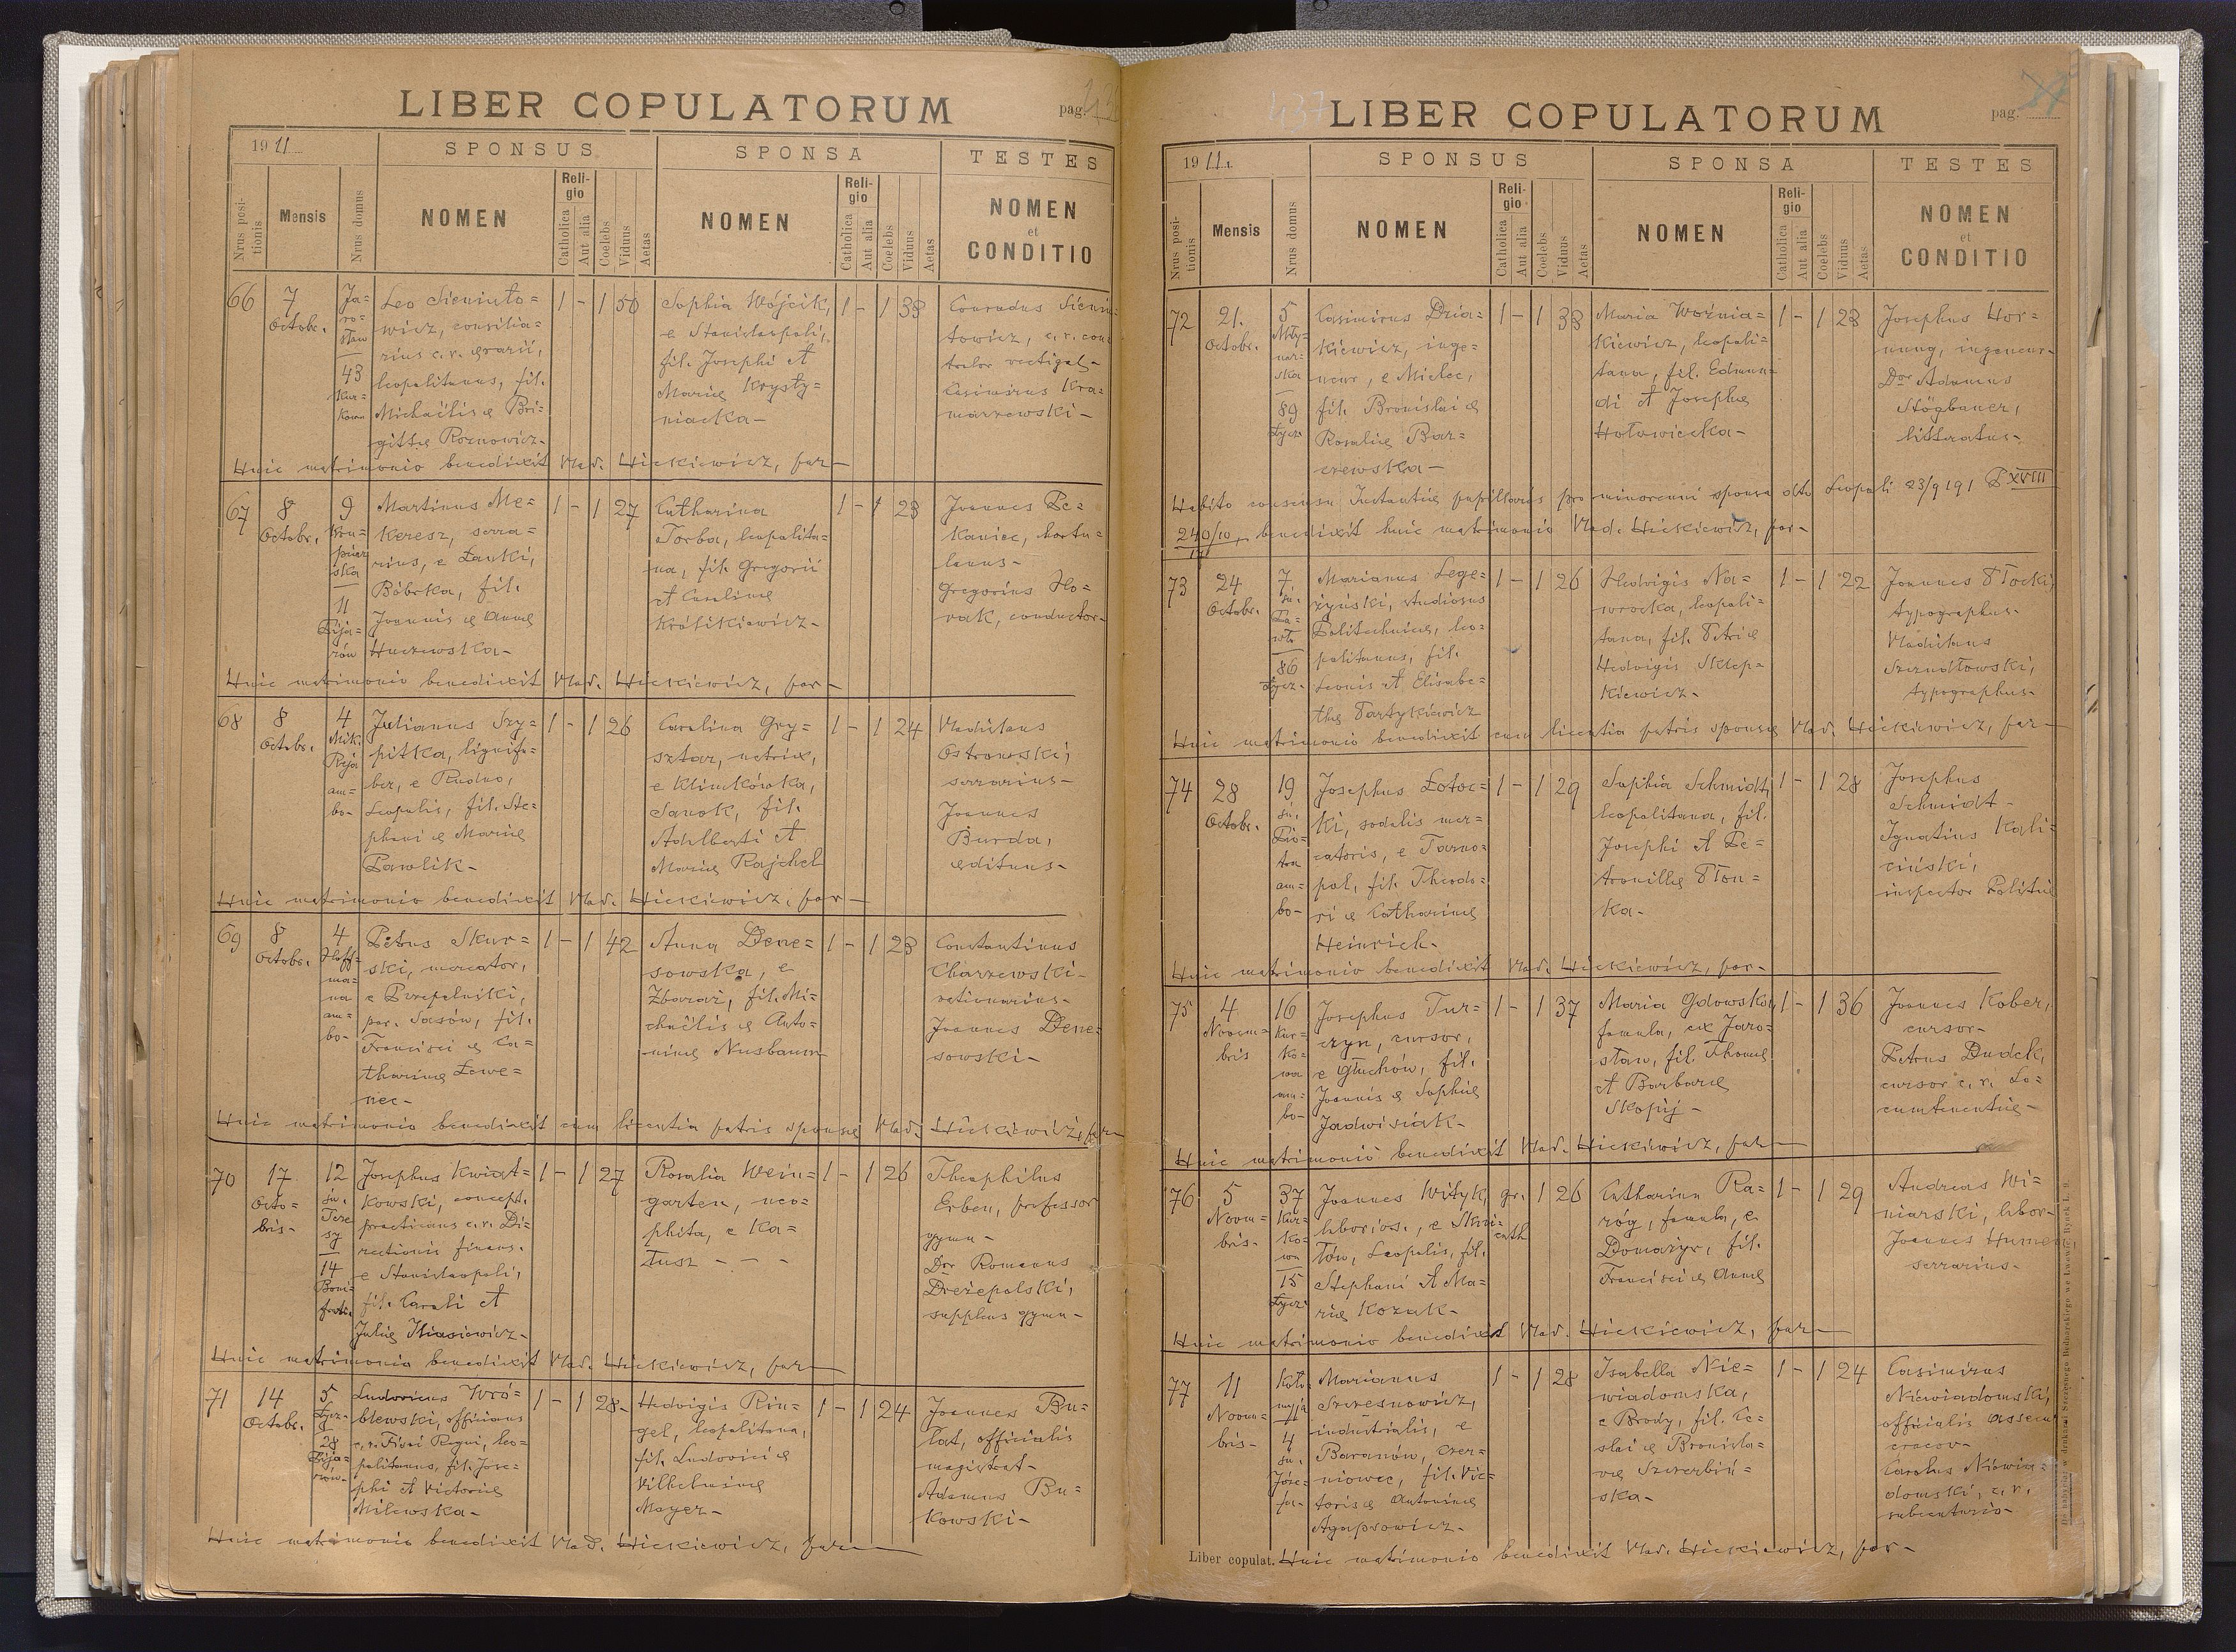 LIBER COPULATORUM
pag.
1911
SPONSUS
SPONSA
TESTES
Nrus positionis
Mensis
Nrus domus
NOMEN
Religio
Catholica
Aut alia
Coelebs
Viduus
Aetas
NOMEN
Religio
Catholica
Aut alia
Coelebs
Viduus
Aetas
NOMEN
et
CONDITIO
66
7
Octobr.
Ja=
ro=
sław
43
Kur=
kowa
Leo Sieninto=
wicz, consilia=
rius c.r. ærarii,
leopolitanus, fil.
Michaëlis & Bri=
gittæ Roznowicz-
1 - 1 50
Sophia Wójcik,
e Stanislaopoli,
fil. Josephi et
Mariæ Krysty=
niacka-
1 - 1 33
Conradus
towicz, c.r. con
trolor vectigal-
Casimirus Kra=
marzewski-
Huic matrimonio benedixit Vlad. Hickiewicz, par-
67
8
Octobr.
9
Kru=
piar
ska
11
Łyja=
ków
Martinus Me=
keresz, serra=
rius, e Łanki,
Bóbrka, fil.
Joannis & Annæ
Huczewska-
1 - 1 27
Catharina
Torba, leopolita=
na, fil. Gregorii
et Carolinæ
Królikiewicz-
1 - 1 23
Joannes Pe=
kaniec, hortu=
lanus-
Gregorius Ho=
rak, conductor-
Huic matrimonio benedixit Vlad. Hickiewicz, par-
68
8
Octobr.
4
Mik.
Reja
am=
bo-
Julianus Szy=
pitka, lignifa=
ber, e Rudno,
Leopolis, fil. Ste=
phani & Mariæ
Pawlik-
1 - 1 26
Carolina Gry=
sztar, nutrix,
e Klimkówka,
Sanok, fil.
Adalberti et
Mariæ Rajchel
1 - 1 24
Vladislaus
Ostrowski,
serrarius-
Joannes
Burda,
ædituus-
Huic matrimonio benedixit Vlad. Hickiewicz, par-
69
8
Octobr.
4
Hoff=
ma=
na
am=
bo-
Petrus Skur=
ski, mercator,
e Przepelniki,
par. Sasów, fil.
Francisci & Ca=
tharinæ Łewe=
nec-
1 - 1 42
Anna Dene=
sowska, e
Zbaraż, fil. Mi=
chaëlis & Anto=
ninæ Nusbaum
1 - 1 23
Constantinus
Charzewski-
rationarius-
Joannes Dene=
sowski-
Huic matrimonio benedixit cum licentia patris sponsæ Vlad. Hickiewicz, par
70
17
Octo=
bris-
12
św.
Tere
sy
14
Boni=
fratr.
Josephus Kwiat=
kowski, concept.
practicans c.r. Di=
rectionis financ.
e Stanislaopoli,
fil. Caroli et
Juliæ Iliasiewicz-
1 - 1 27
Rosalia Wein=
garten, neo=
phita, e Ka=
łusz - - -
1 - 1 26
Theophilus
Erben, professor
gymn-
Dor Romanus
Dreżepolski,
supplens gymn-
Huic matrimonio benedixit Vlad. Hickiewicz, par-
71
14
Octobr.
5
Łycz=
28
Łyja=
ków-
Ludovicus Wró=
blewski, officians
c.r. Fisci Regni, leo=
politanus, fil. Jose=
phi et Victoriæ
Milewska-
1 - 1 28-
Hedvigis Rin=
gel, leopolitana,
fil. Ludovici &
Vilhelminæ
Mayer-
1 - 1 24
Joannes Bu=
łat, officialis
magistrat-
Adamus Bu=
kowski-
Huic matrimonio benedixit Vlad. Hickiewicz, par-
437
LIBER COPULATORUM
pag.
1911.
SPONSUS
SPONSA
TESTES
Nrus positionis
Mensis
Nrus domus
NOMEN
Religio
Catholica
Aut alia
Coelebs
Viduus
Aetas
NOMEN
Religio
Catholica
Aut alia
Coelebs
Viduus
Aetas
NOMEN
et
CONDITIO
72
21.
Octobr.
5
Mły=
nar=
ska
89
Łycz.
Casimirus Dzia=
kiewicz, inge=
neur, e Mielec,
fil. Bronislai &
Rosaliæ Bar=
czewska-
1 - 1 33
Maria Woźnia=
kiewicz, leopoli=
tana, fil. Edmun=
di et Josephæ
Hołowiecka-
1 - 1 23
Josephus Hor=
nung, ingeneur-
Dor Adamus
Stögbauer,
litteratus-
Habito consensu Instantiæ pupillaris pro minorenni sponsa dto Leopoli 23/9 191 P XVIII
240/10, benedixit huic matrimonio Vlad. Hickiewicz, par-
73
24
Octobr.
7
św.
Pa=
wła
86
Łycz-
Marianus Lege=
żyński, studiosus
Politechnicæ, leo=
politanus, fil.
Leonis et Elisabe=
thæ Partykiewicz
1 - 1 26
Hedvigis Na=
wrocka, leopoli=
tana, fil. Petri &
Hedvigis Sklep=
kiewicz-
1 - 1 22
Joannes Płocki,
typographus-
Vladislaus
Szrendłowski,
typographus-
Huic matrimonio benedixit cum licentia patris sponsæ Vlad. Hickiewicz, par-
74
28
Octobr.
19
św.
Pio=
tra
am=
bo-
Josephus Łotoc=
ki, sodalis mer=
catoris, e Tarno=
pol, fil. Theodo=
ri & Catharinæ
Heinrich-
1 - 1 29
Sophia Schmidt,
leopolitana, fil.
Josephi et Pe=
tronillæ Płon=
ka-
1 - 1 28
Josephus
Schmidt-
Ignatius Kali=
ciński,
inspector Politiæ
Huic matrimonio benedixit Vlad. Hickiewicz, par-
75
4
Novem=
bris
16
Kur=
ko=
wa
am=
bo-
Josephus Tur=
czyn, cursor,
e Głuchów, fil.
Joannis & Sophiæ
Jadwisiak-
1 - 1 37
Maria Gdowska,
famula, ex Jaro=
sław, fil. Thomæ
et Barbaræ
Skopij-
1 - 1 36
Joannes Kober,
cursor-
Petrus Dudek,
cursor c.r. Lo=
cumtenentiæ-
Huic matrimonio benedixit Vlad. Hickiewicz, par-
76
5
Novem=
bris-
37
Kur=
ko=
wa
15
Łycz.
Joannes Wityk,
laborios., e Skni=
łów, Leopolis, fil.
Stephani et Ma=
riæ Kozak-
gr. cath
1 26
Catharina Ra=
róg, famula, e
Domażyr, fil.
Francisci & Annæ
1 - 1 29
Andreas Wi=
niarski, labor-
Joannes
serrarius-
Huic matrimonio benedixit Vlad. Hickiewicz, par-
77
11
Novem=
bris-
Koło=
myja
4
św.
Józe=
fa-
Marianus
Szczesnowicz,
industrialis, e
Baranów, Czer=
niowec, fil. Vic=
toris & Antoninæ
Agapsowicz-
1 - 1 28
Isabella Nie=
wiadomska,
e Brody, fil. Ce=
slai & Bronisla=
væ Szczerbiń=
ska-
1 - 1 24
Casimirus
Niewiadomski,
officialis assecur
cracov-
Carolus Niewia=
domski, c.r.
subcenturio-
Liber copulat. Huic matrimonio benedixit Vlad. Hickiewicz, par-